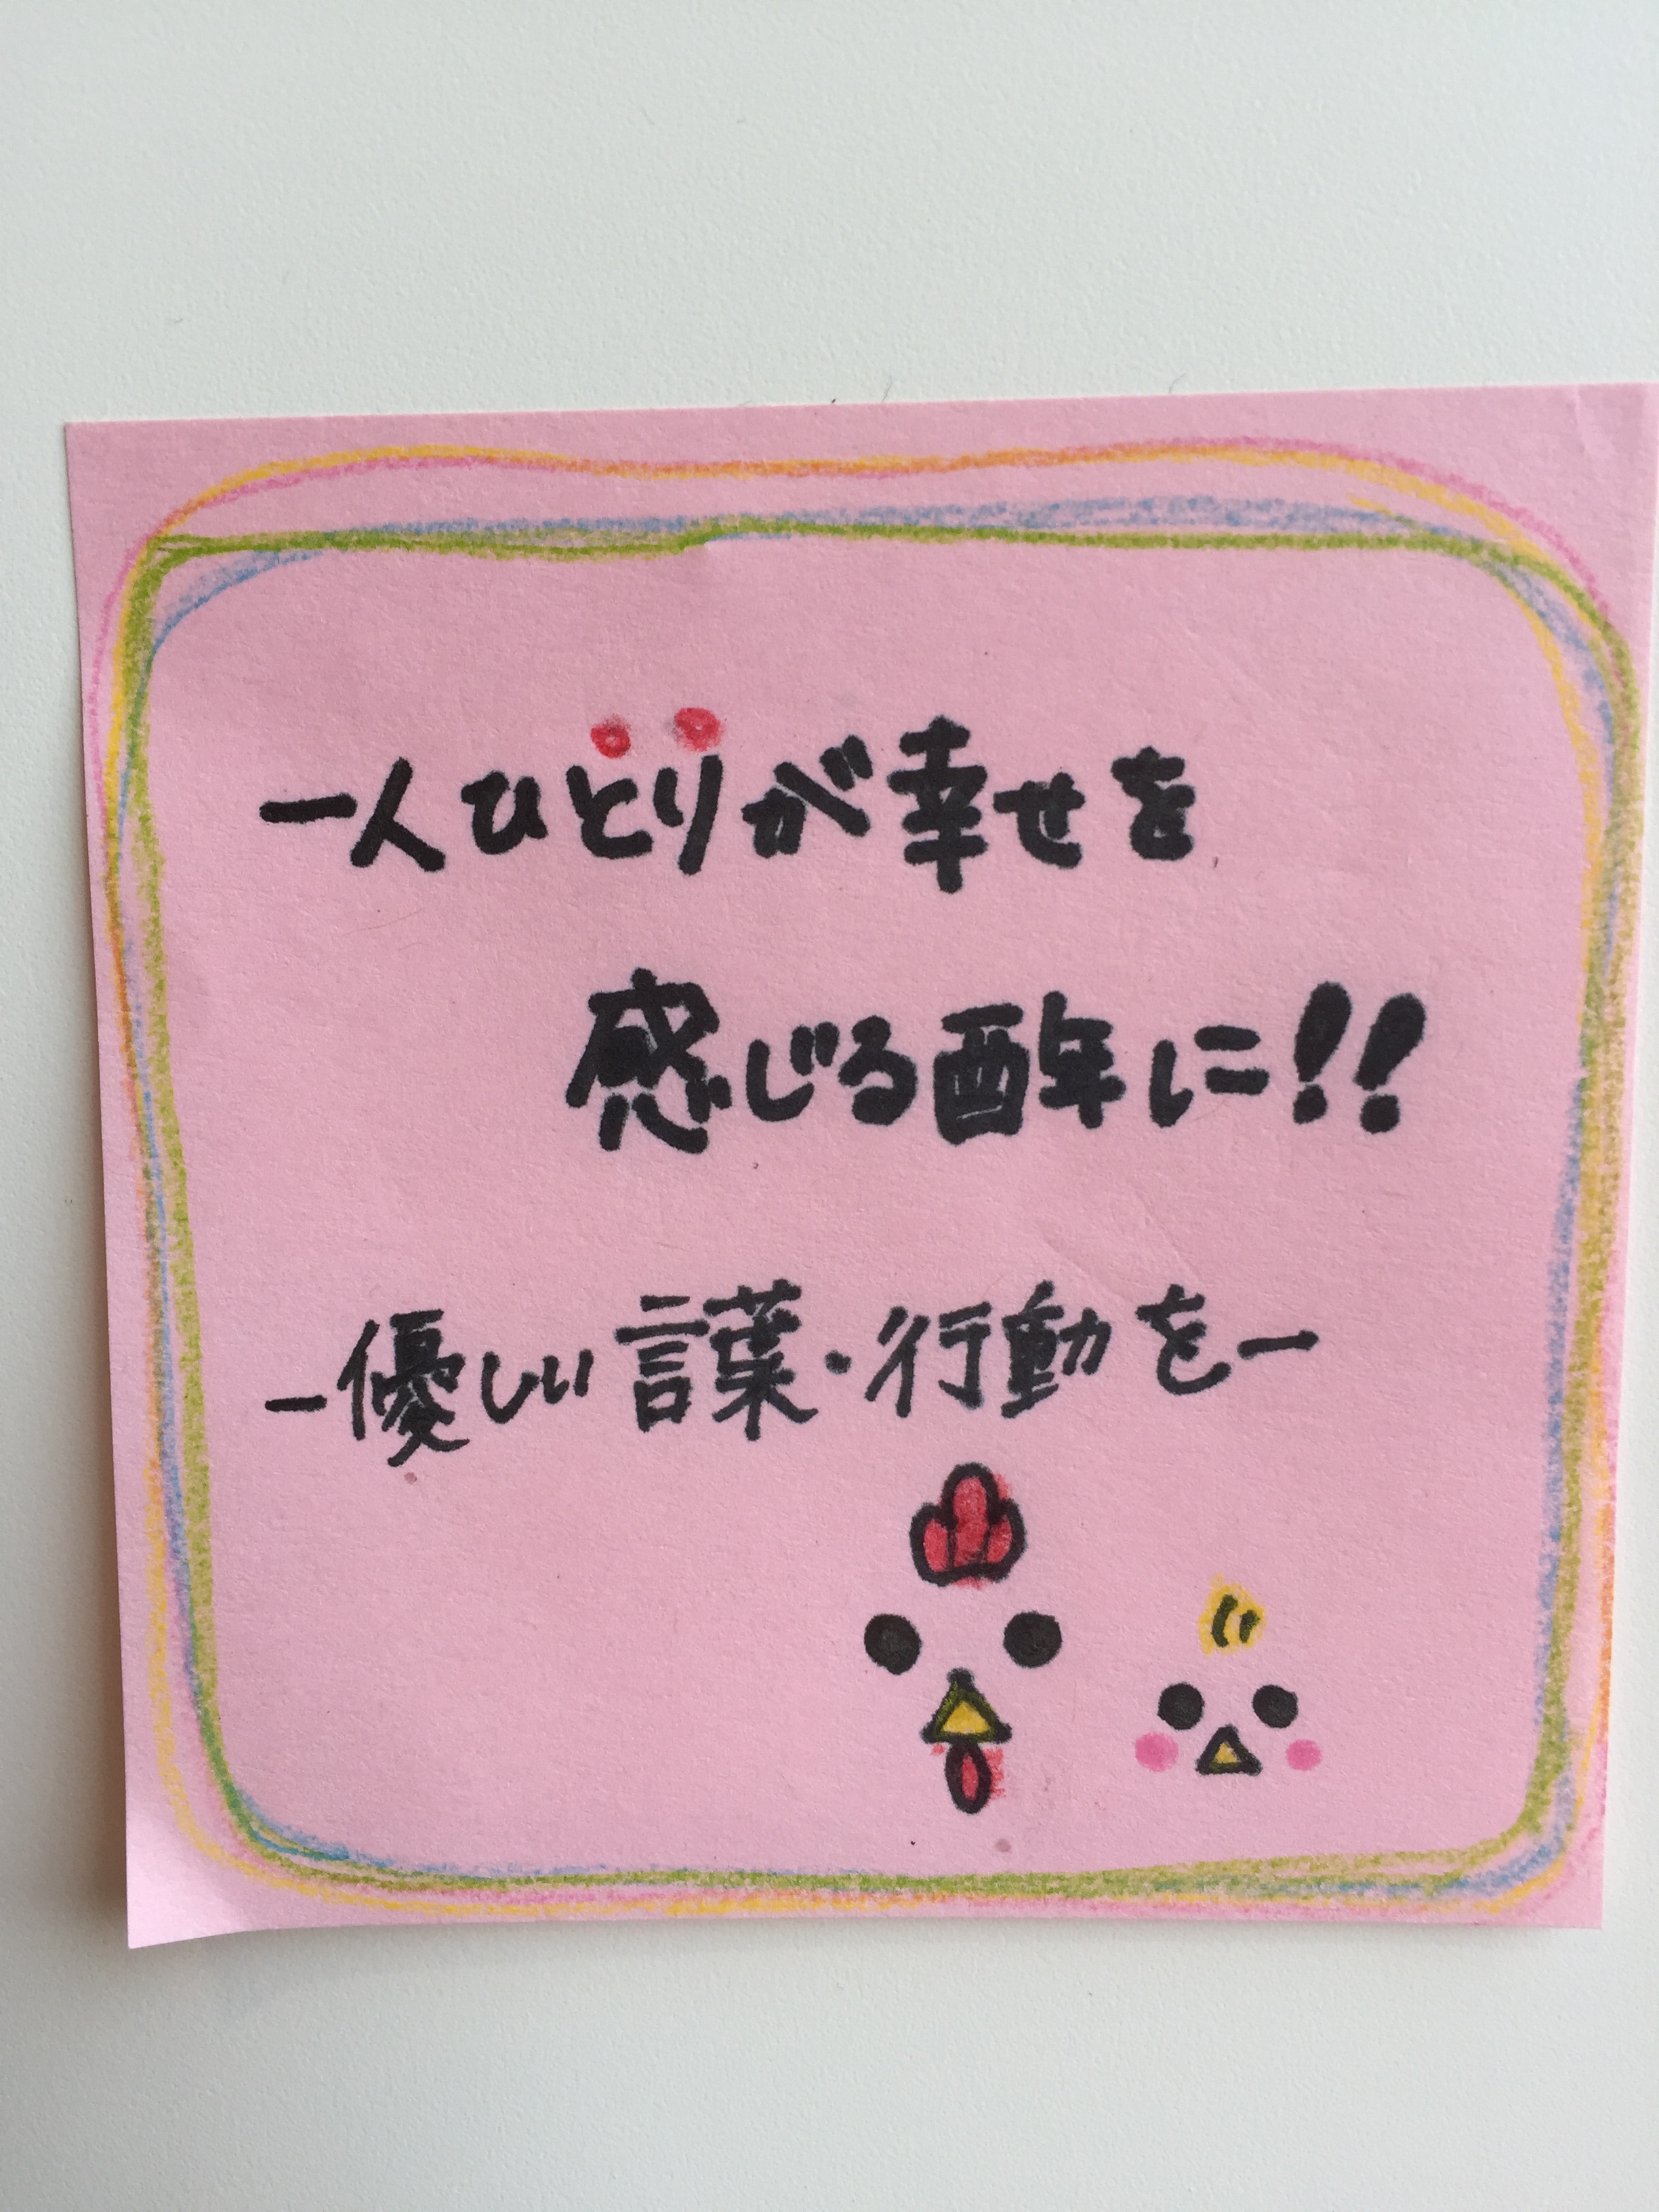 一人ひとりが幸せを
感じる酉年に!!
-優しい言葉・行動を-